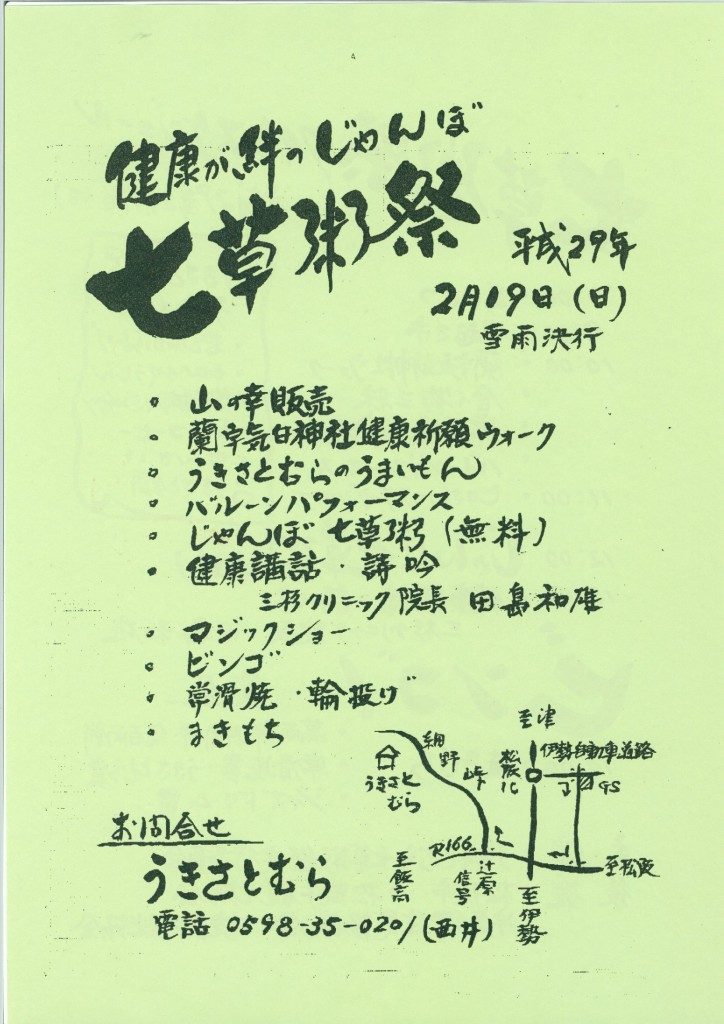 健康が、絆のじゃんぼ
七草粥祭
平成29年
2月19日(日)
雪雨決行
・山の幸販売
・蘭宇気白神社健康祈願ウォーク
・うきさとむらのうまいもん
・バルーンパフォーマンス
・じゃんぼ七草粥(無料)
・健康講話・詩吟
三杉クリニック院長 田島和雄
・マジックショー
・ビンゴ
・常滑焼・輪投げ
・まきもち
至津
伊勢自動車道路
松阪IC
GS
細野峠
うきさと
むら
R166
辻原
信号
至飯高
至松阪
至伊勢
お問合せ
うきさとむら
電話 0598-35-0201(西井)